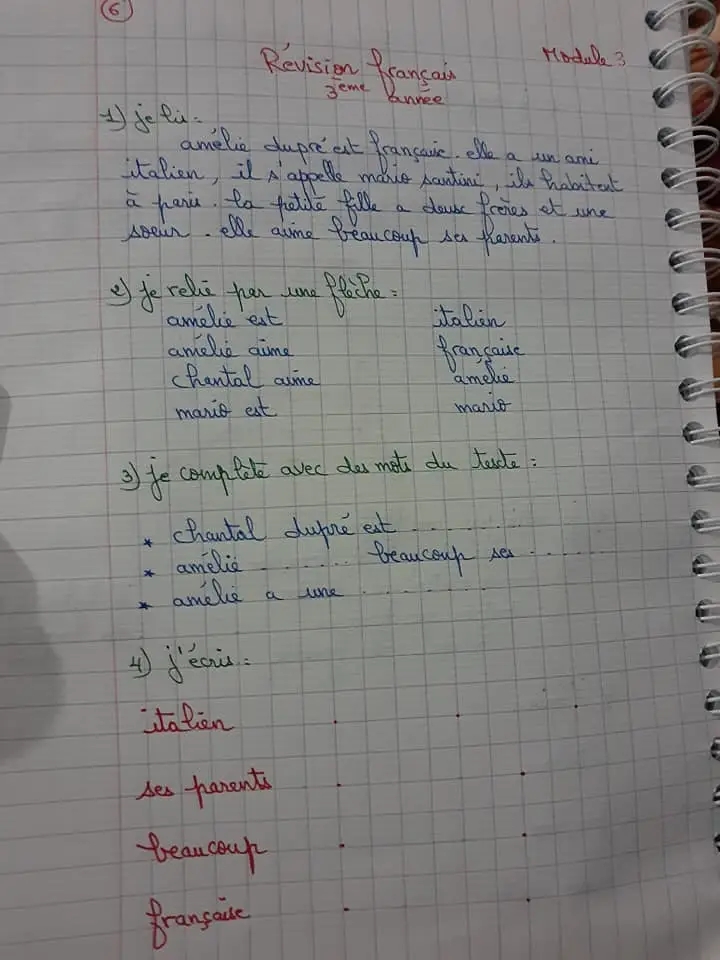 6
Révision français
Module 3
3ème année
1) je lis :
amélie dupré est française. elle a un ami
italien, il s'appelle mario santini, ils habitent
à paris. la petite fille a deux frères et une
soeur. elle aime beaucoup ses parents.
2) je relie par une flèche :
amélie est italien
amélie aime française
chantal aime amélie
mario est mario
3) je complète avec des mots du texte :
* chantal dupré est ..........
* amélie .......... beaucoup ses ..........
* amélie a une ..........
4) j'écris :
italien . . .
ses parents . .
beaucoup . .
française . .